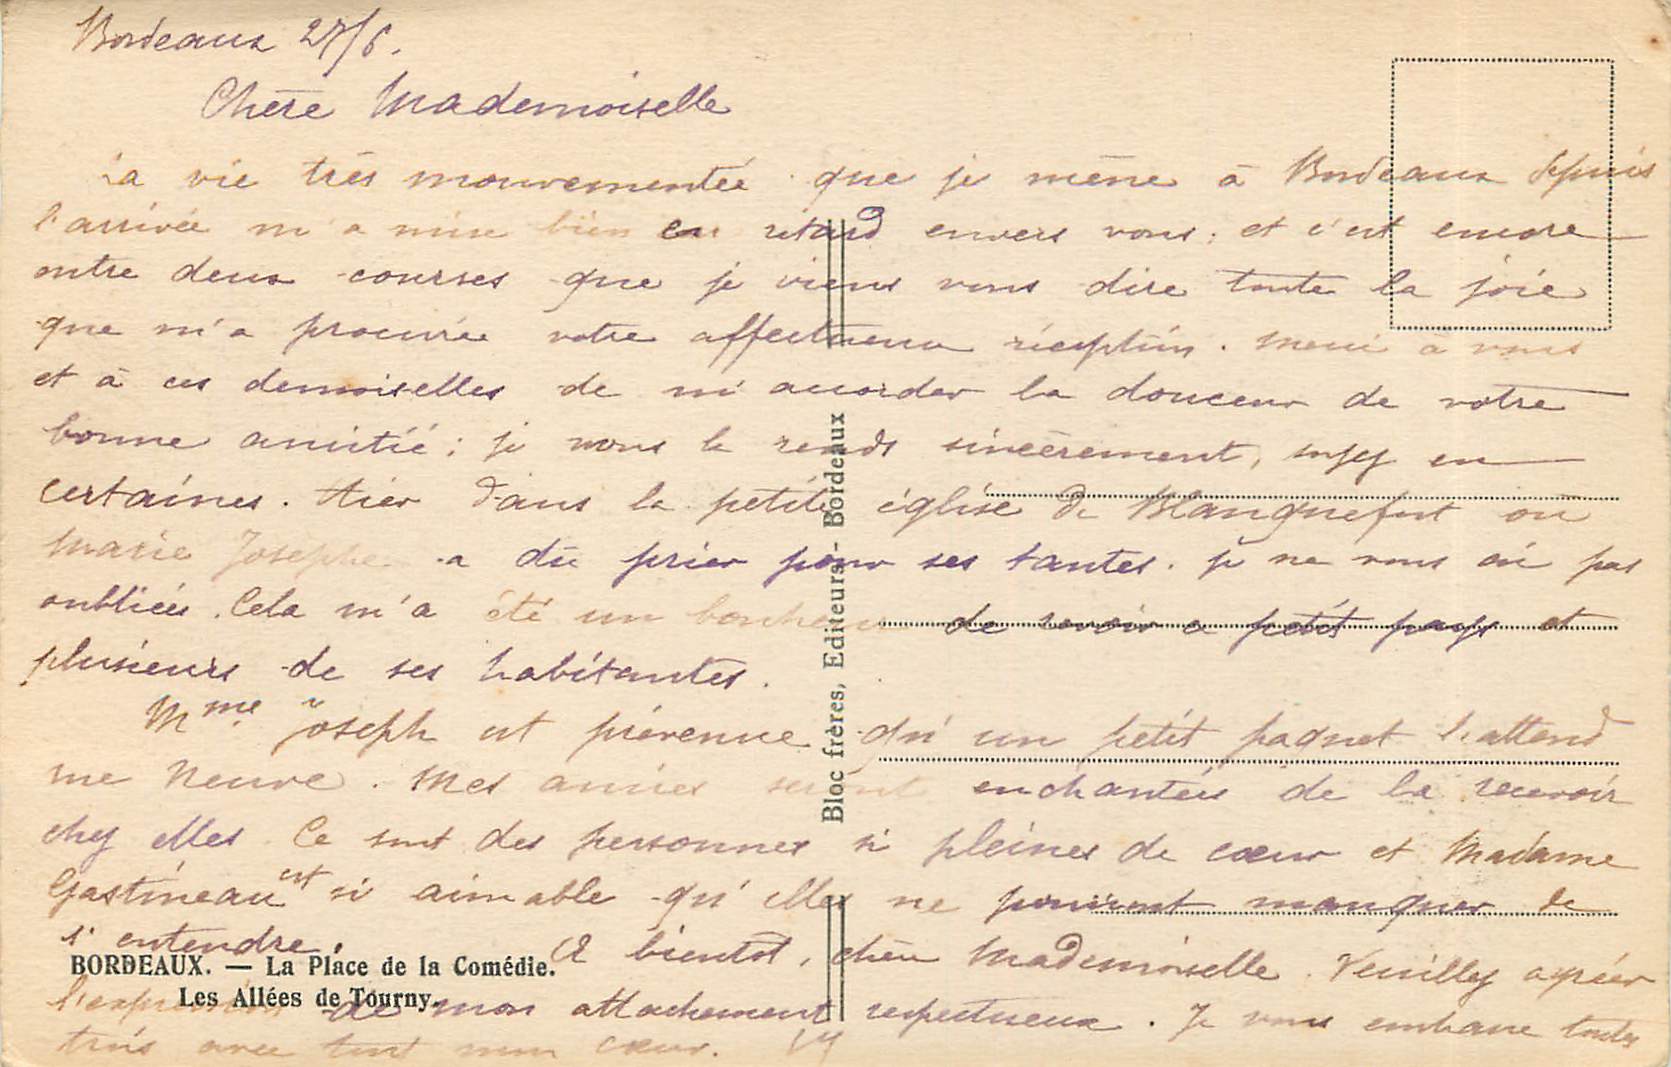 Bordeaux 27/6.
Chère Mademoiselle
La vie très mouvementée que je mène à Bordeaux depuis
l'arrivée m'a mise bien en retard envers vous; et c'est encore
entre deux courses que je viens vous dire toute la joie
que m'a procurée votre affectueuse réception. Merci à vous
et à ces demoiselles de m'accorder la douceur de votre
bonne amitié; je vous la rends sincèrement, soyez en
certaines. Hier dans la petite église de Blanquefort où
Marie Josèphe a dû prier pour ses tantes. je ne vous ai pas
oubliées. Cela m'a été un bonheur de revoir ce petit pays et
plusieurs de ses habitantes.
Mme Joseph est prévenue qu'un petit paquet l'attend
rue Neuve. Mes amies seront enchantées de la recevoir
chez elles. Ce sont des personnes si pleines de cœur et Madame
Gastineau est si aimable qu'elles ne pourront manquer de
s'entendre. A bientôt, chère Mademoiselle. Veuillez agréer
l'expression de mon attachement respectueux. Je vous embrasse toutes
trois avec tout mon cœur.
BORDEAUX. — La Place de la Comédie.
Les Allées de Tourny.
Bloc frères, Editeurs - Bordeaux